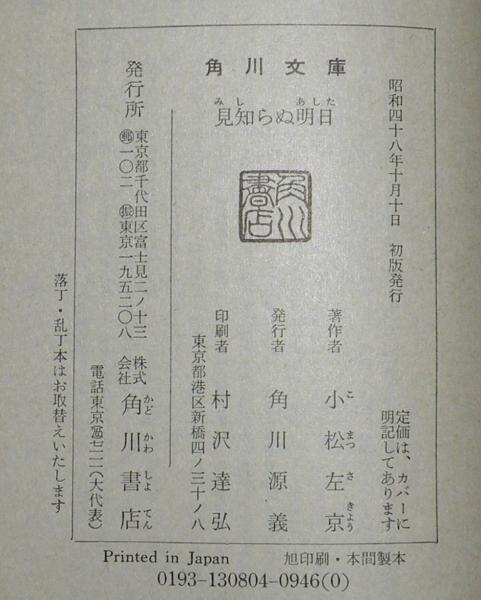 角川文庫
みし あした
見知らぬ明日
昭和四十八年十月十日 初版発行
定価は、カバーに
明記してあります
著作者 小松左京
こ まつ さ きょう
発行者 角川源義
印刷者 村沢達弘
東京都港区新橋四ノ三十ノ八
角川書店
発行所
東京都千代田区富士見二ノ十三
郵一〇二 振東京一九五二〇八
株式
会社
角川書店
かど かわ しょ てん
(大代表)
電話東京
落丁・乱丁本はお取替えいたします
Printed in Japan 旭印刷・本間製本
0193-130804-0946(0)